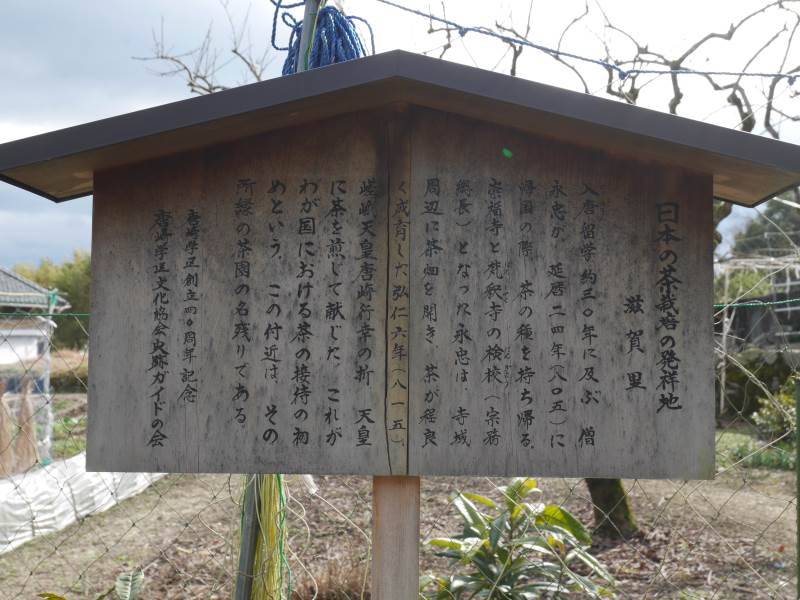 日本の茶栽培の発祥地
滋賀里
入唐留学約三〇年に及ぶ 僧
永忠が 延暦二四年(八〇五)に
帰国の際 茶の種を持ち帰る.
崇福寺と梵釈寺の検校(宗務
総長)となった永忠は、寺域
周辺に茶畑を開き 茶が程良
く成育した弘仁六年(八一五)、
嵯峨天皇唐崎行幸の折 天皇
に茶を煎じて献じた これが
わが国における茶の接待の初
めという. この付近は、その
所縁の茶園の名残りである
唐崎学区創立四〇周年 記念
唐崎学区文化協会史跡ガイドの会